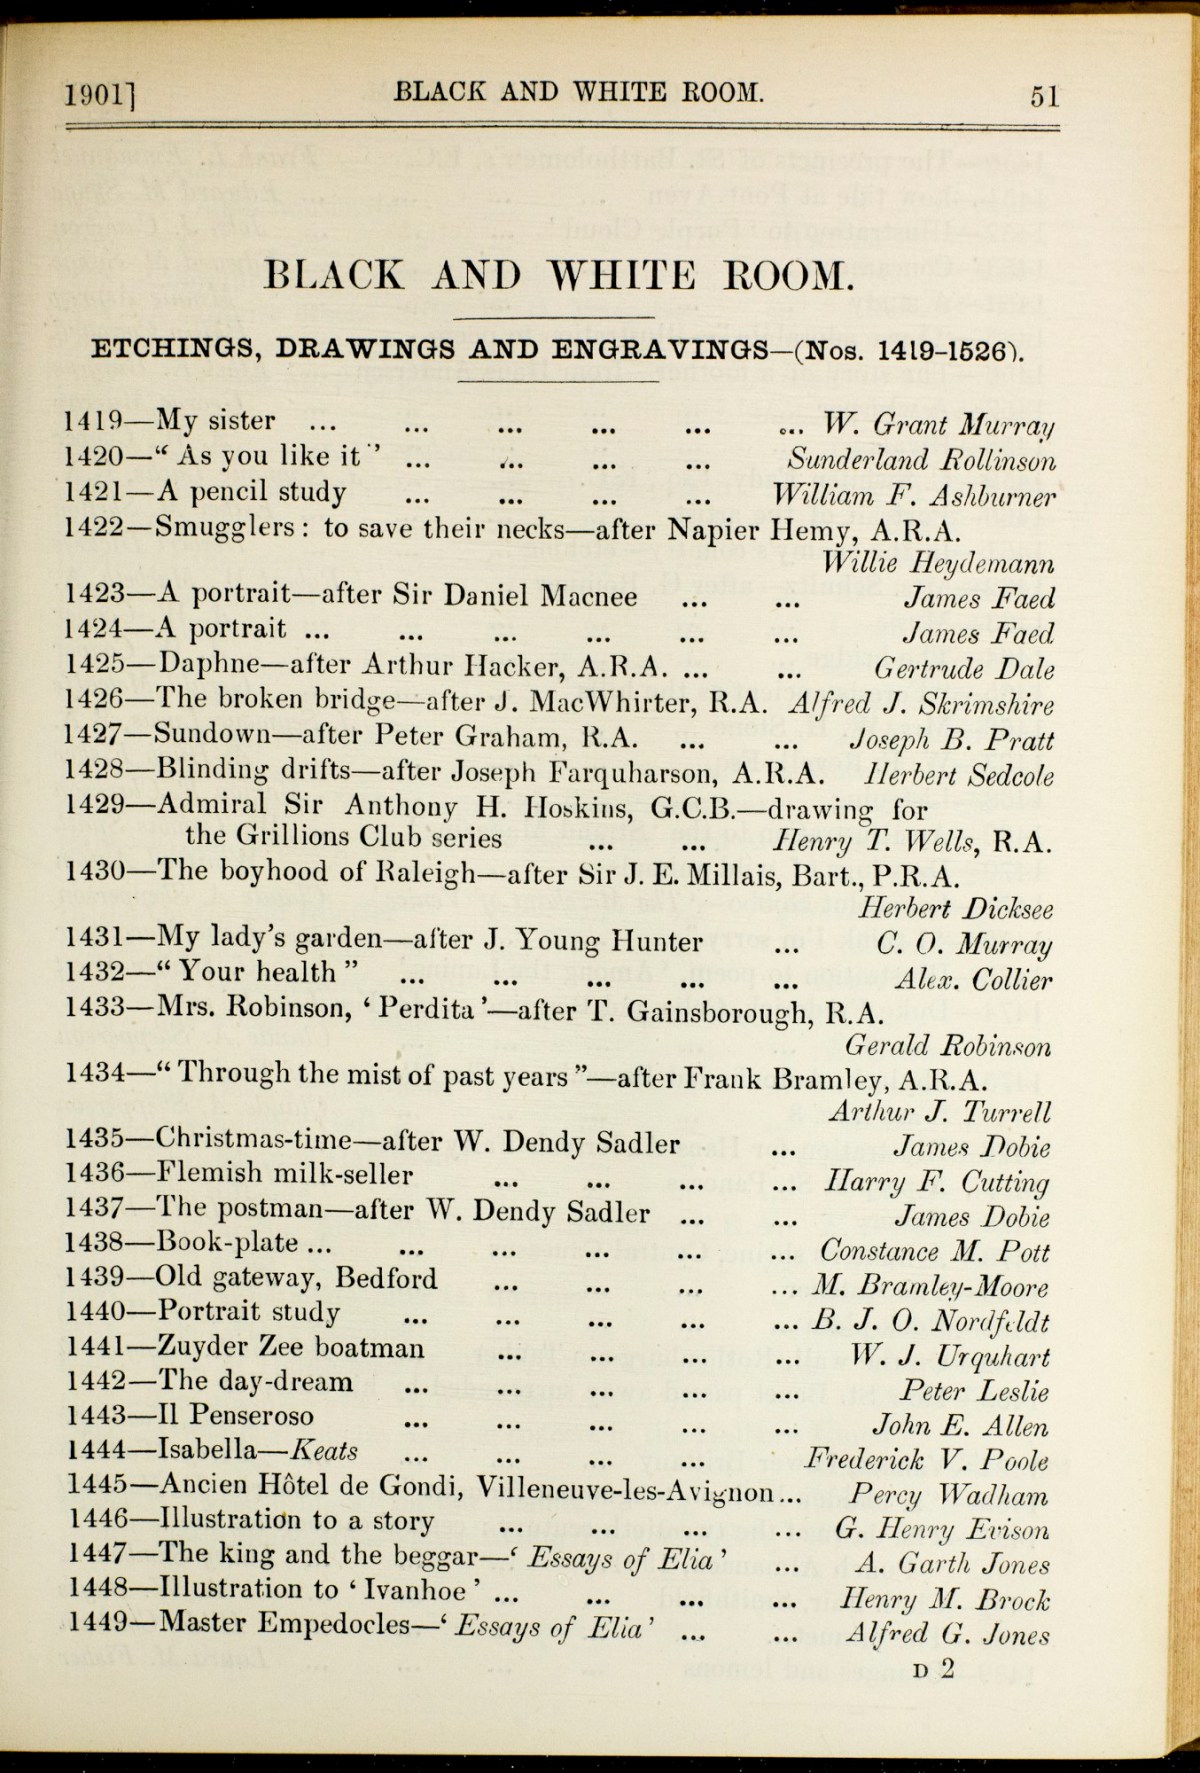 1901] BLACK AND WHITE ROOM. 51
BLACK AND WHITE ROOM.
ETCHINGS, DRAWINGS AND ENGRAVINGS—(Nos. 1419-1526).
1419—My sister ... ... ... ... ... ... W. Grant Murray
1420—“ As you like it ” ... ... ... ... Sunderland Rollinson
1421—A pencil study ... ... ... ... William F. Ashburner
1422—Smugglers : to save their necks—after Napier Hemy, A.R.A.
Willie Heydemann
1423—A portrait—after Sir Daniel Macnee ... ... James Faed
1424—A portrait ... ... ... ... ... ... James Faed
1425—Daphne—after Arthur Hacker, A.R.A. ... ... Gertrude Dale
1426—The broken bridge—after J. MacWhirter, R.A. Alfred J. Skrimshire
1427—Sundown—after Peter Graham, R.A. ... ... Joseph B. Pratt
1428—Blinding drifts—after Joseph Farquharson, A.R.A. Herbert Sedcole
1429—Admiral Sir Anthony H. Hoskins, G.C.B.—drawing for
the Grillions Club series ... ... Henry T. Wells, R.A.
1430—The boyhood of Raleigh—after Sir J. E. Millais, Bart., P.R.A.
Herbert Dicksee
1431—My lady’s garden—after J. Young Hunter ... C. O. Murray
1432—“ Your health ” ... ... ... ... ... Alex. Collier
1433—Mrs. Robinson, ‘ Perdita ’—after T. Gainsborough, R.A.
Gerald Robinson
1434—“ Through the mist of past years ”—after Frank Bramley, A.R.A.
Arthur J. Turrell
1435—Christmas-time—after W. Dendy Sadler ... James Dobie
1436—Flemish milk-seller ... ... ... ... Harry F. Cutting
1437—The postman—after W. Dendy Sadler ... ... James Dobie
1438—Book-plate ... ... ... ... ... ... Constance M. Pott
1439—Old gateway, Bedford ... ... ... ... M. Bramley-Moore
1440—Portrait study ... ... ... ... ... B. J. O. Nordfeldt
1441—Zuyder Zee boatman ... ... ... ... W. J. Urquhart
1442—The day-dream ... ... ... ... ... Peter Leslie
1443—Il Penseroso ... ... ... ... ... John E. Allen
1444—Isabella—Keats ... ... ... ... Frederick V. Poole
1445—Ancien Hôtel de Gondi, Villeneuve-les-Avignon... Percy Wadham
1446—Illustration to a story ... ... ... ... G. Henry Evison
1447—The king and the beggar—‘ Essays of Elia ’ ... A. Garth Jones
1448—Illustration to ‘ Ivanhoe ’ ... ... ... ... Henry M. Brock
1449—Master Empedocles—‘ Essays of Elia ’ ... ... Alfred G. Jones
D 2